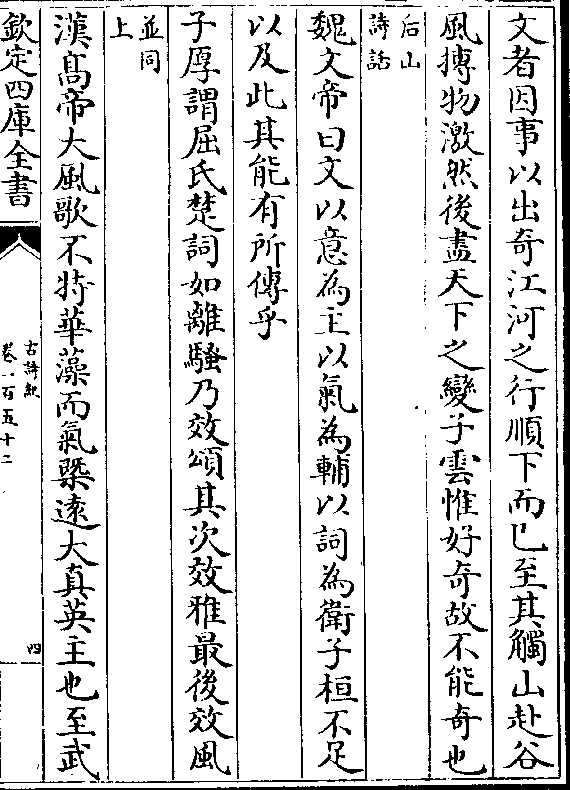 文者因事以出奇江河之行順下而已至其觸山赴谷
風摶物激然後盡天下之變子雲惟好奇故不能奇也
后山
詩話
魏文帝曰文以意為主以氣為輔以詞為衛子桓不足
以及此其能有所傳乎
子厚謂屈氏楚詞如離騷乃效頌其次效雅最後效風
並同
上
漢高帝大風歌不特華藻而氣槩遠大真英主也至武
欽定四庫全書
古詩紀
卷一百五十二
四